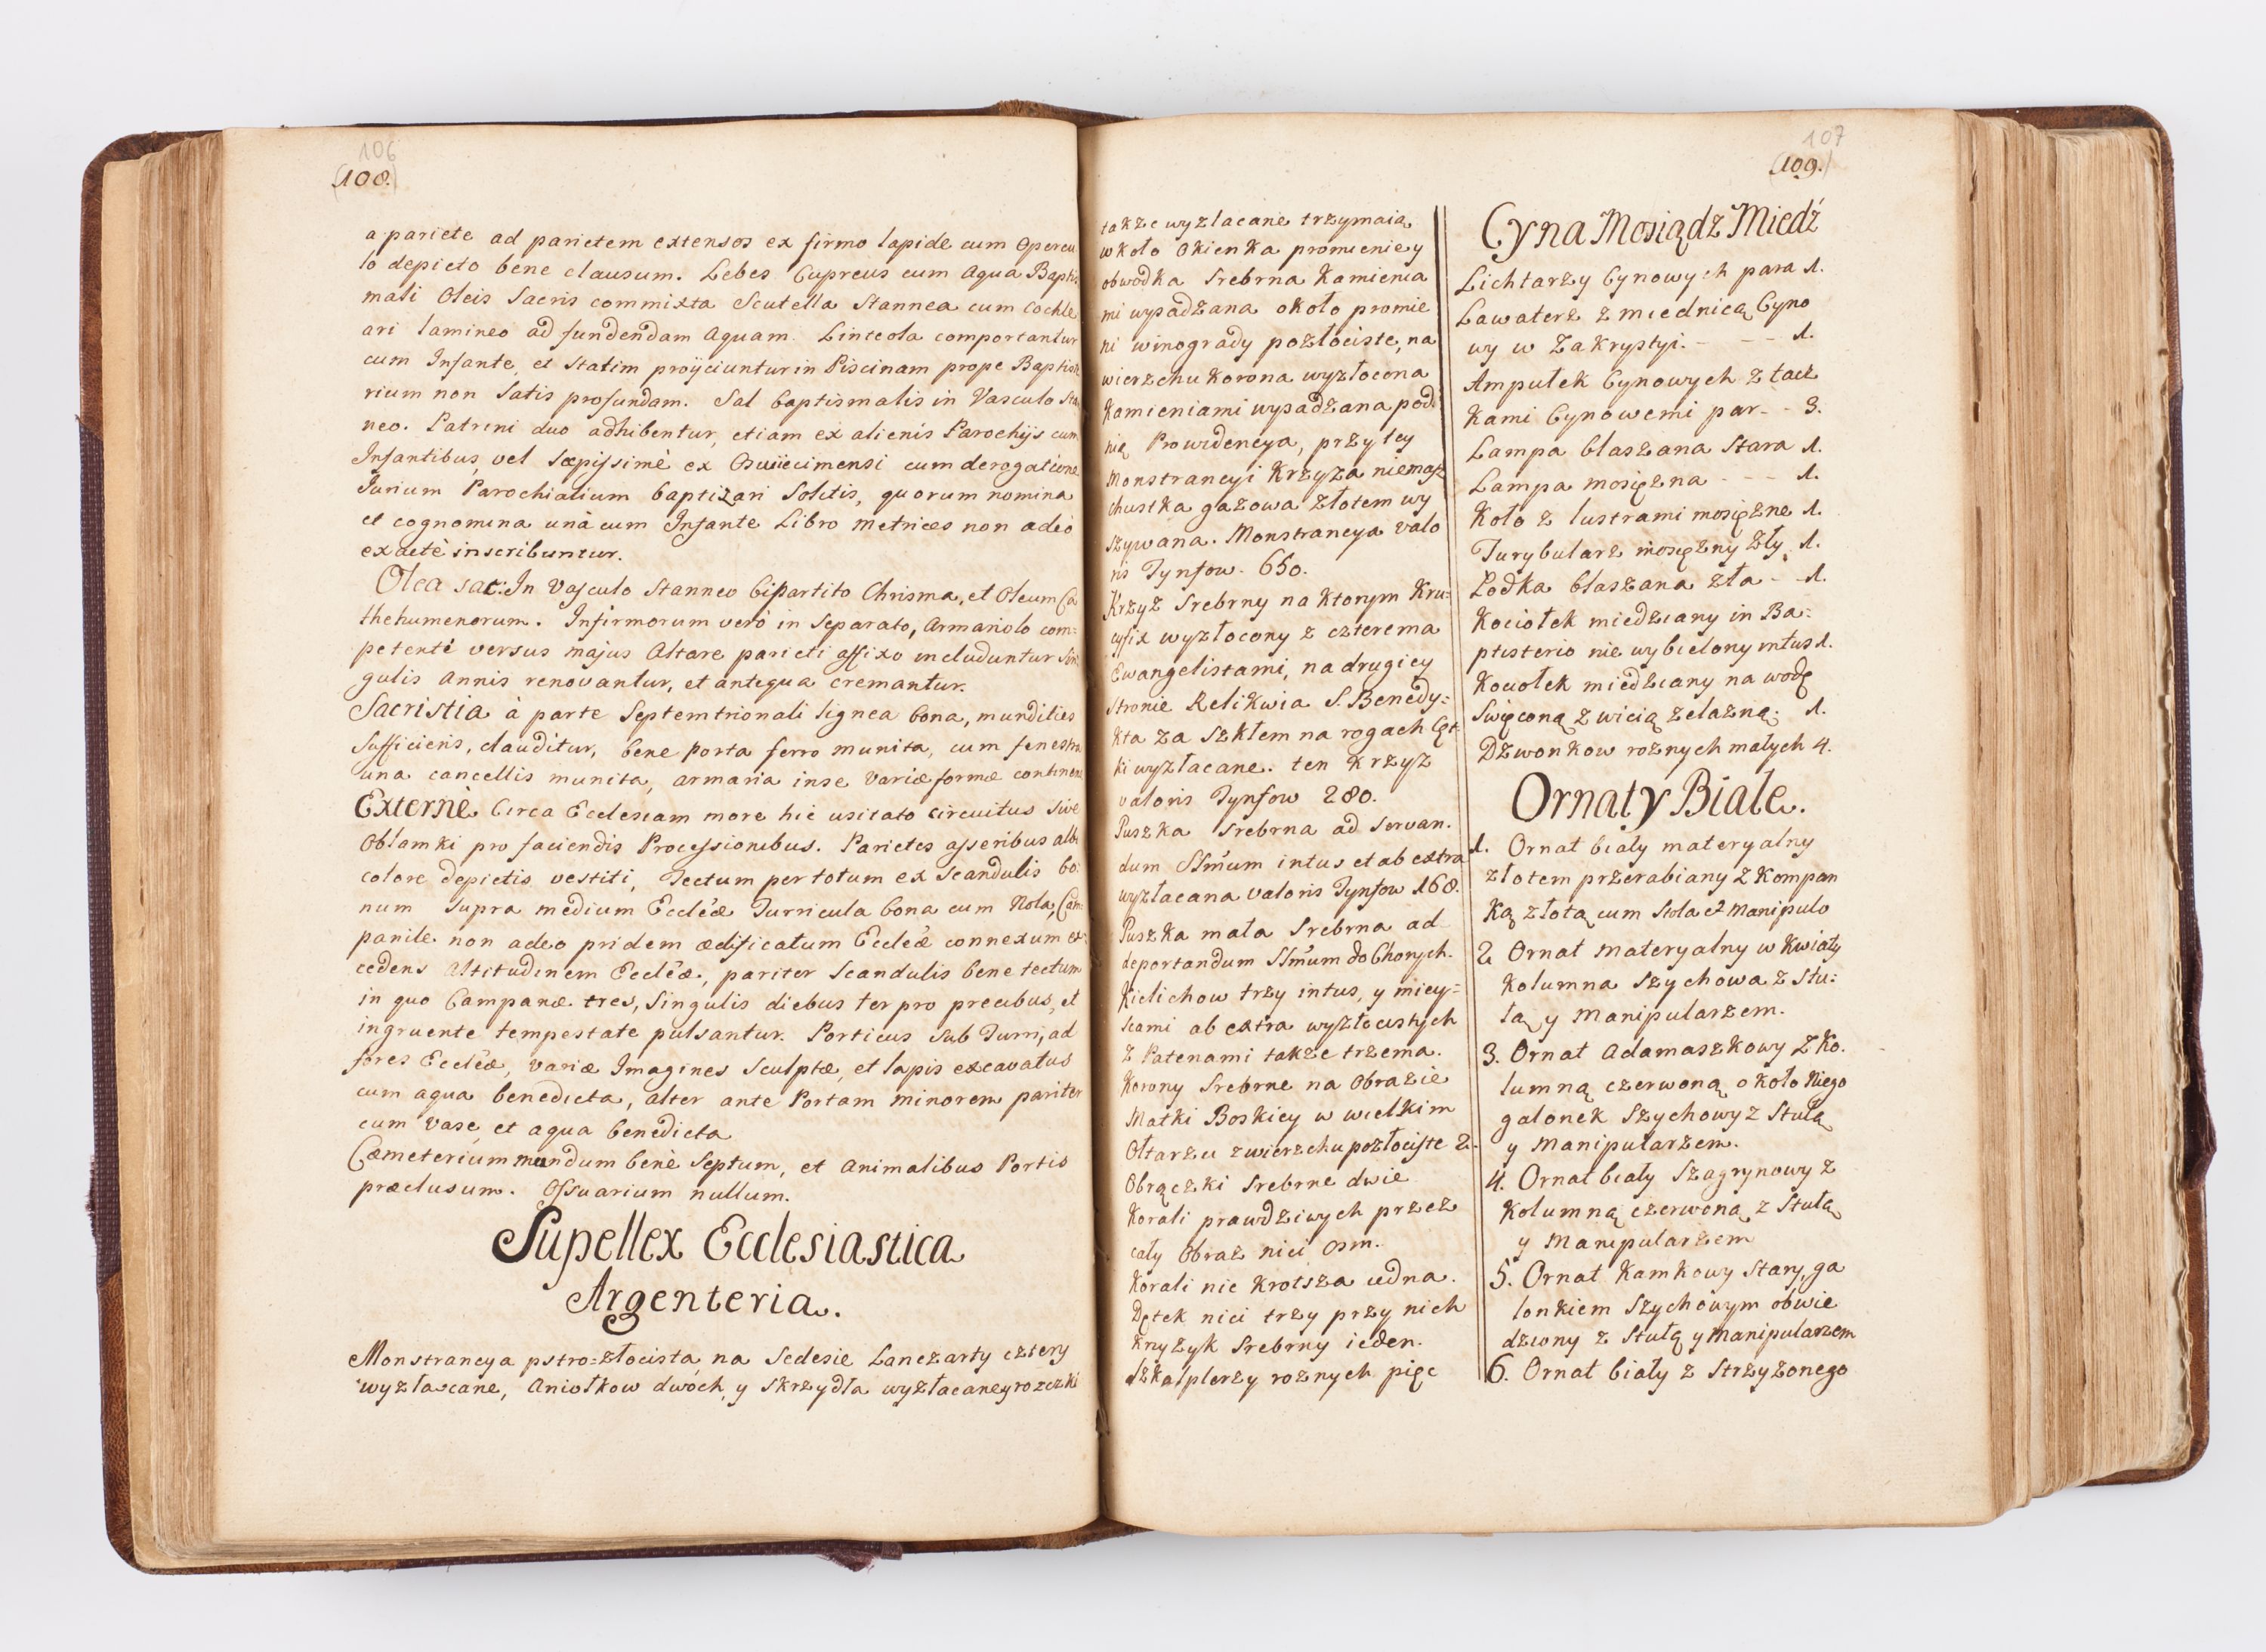 106
(108.)
a pariete ad parietem extensos ex firmo lapide cum opercu
lo depicto bene clausum. Lebes Cupreus cum Aqua Baptis
mali Oleis Sacris commixta Scutella Stannea cum Cochle
ari lamineo ad fundendam Aquam. Linteola comportantur
cum Infante, et statim proijciuntur in Piscinam prope Baptiste
rium non satis profundam. Sal baptismalis in Vasculo stan
neo. Patrini duo adhibentur, etiam ex alienis Parochijs cum
Infantibus, vel sæpissimè ex Oswiecimensi cum derogatione
Jurium Parochialium baptizari Solitis, quorum nomina
et cognomina unà cum Infante Libro metrices non adeo
exactè inscribuntur.
Olea sac: In Vasculo Stanneo bipartito Chrisma, et Oleum Ca
thehumenorum. Infirmorum verò in Separato, Armariolo com=
petentè versus majus Altare parieti affixo includuntur Sin
gulis Annis renovantur, et antiqua cremantur.
Sacristia à parte Septemtrionali lignea bona, mundities
Sufficiens, clauditur, bene porta ferro munita, cum fenestra
una cancellis munita, armaria in se Variæ formæ continens
Externè Circa Ecclesiam more hic usitato circuitus sive
Oblamki pro faciendis Processionibus. Parietes asseribus albo
colore depictis vestiti, Tectum per totum ex Scandulis bo:
num supra medium Eccléæ Turricula bona cum Nola, Cam
panile non adeo pridem ædificatum Eccléæ connexum ex
cedens Altitudinem Eccléæ, pariter Scandulis bene tectum
in quo Campanæ tres, Singulis diebus ter pro precibus, et
ingruente tempestate pulsantur. Porticus Sub Turri, ad
fores Eccléæ, variæ Imagines Sculptæ, et lapis excavatus
cum aqua benedicta, alter ante Portam minorem pariter
cum Vase et aqua benedicta
Cæmeterium mundum benè Septum, et Animalibus Portis
præclusum. Ossuarium nullum.
Supellex Ecclesiastica
Argenteria.
Monstrancya pstro=złocista na Sedesie Lanczarty cztery
wyzłacane, Aniołkow dwóch, y skrzydła wyzłacane y rozczki
107
(109.)
także wyzlacane trzymaią,
w koło Okienka promienie y
obwodka Srebrna Kamienia
mi wysadzana około promie
ni winogrady pozłociste, na
wierzchu Korona wyzłocona
Kamieniami wysadzana pod
nią Prowidencya, przy tey
Monstrancyi Krzyza niemasz
chustka gazowa złotem wy
szywana. Monstrancya valo
ris Tynfow. 650.
Krzyz srebrny na Ktorym Kru=
cyfix wyzłocony z czterema
Ewangelistami, na drugiey
Stronie Relikwia S. Benedy=
kta za szkłem na rogach Cęt
ki wyzłacane. ten Krzyz
valoris Tynfow 280.
Puszka srebrna ad servan.
dum SSmum intus et ab extra
wyzłacana Valoris Tynfow 168.
Puszka mała Srebrna ad
deportandum SSmum do Chorych.
Kielichow trzy intus, y miey=
scami ab extra wyzłocistych
z Patenami także trzema.
Korony Srebrne na Obrazie
Matki Boskiey w wielkim
Ołtarzu zwierzchu pozłociste 2.
Obrączki Srebrne dwie
Korali prawdziwych przez
cały Obraz nici osm.
Korali nic Krotsza iedna.
Dętek nici trzy przy nich
Krzyżyk Srebrny ieden.
Szkaplerzy roznych pięc
Cyna Mosiądz Miedź
Lichtarzy Cynowych para 1.
Lawaterz z miednicą Cyno
wy w Zakrystyi. - - - 1.
Ampułek Cynowych z tacz
Kami Cynowemi par - - 3.
Lampa blaszana Stara 1.
Lampa mosiężna - - - 1.
Koło z lustrami mosiężne 1.
Turybularz mosiężny zły 1.
Łodka blaszana zła - - 1.
Kociołek miedziany in Ba=
ptisterio nie wybielony intus 1.
Kociołek miedziany na wodę
Swięconą z wicią zelazną. 1.
Dzwonkow roznych małych 4.
Ornaty Białe.
1. Ornat biały materyalny
złotem przerabiany z Kompan
Ką złotą cum Stola et Manipulo
2. Ornat materyalny w Kwiaty
Kolumna Szychowa z Stu=
łą y Manipularzem.
3. Ornat Adamaszkowy z Ko.
lumną czerwoną około Niego
galonek Szychowy z Stułą
y Manipularzem.
4. Ornat biały Szagrynowy z
Kolumną czerwoną z Stułą
y Manipularzem
5. Ornat Kamkowy Stary, ga
lonkiem Szychowym obwie
dziony z Stułą y Manipularzem
6. Ornat biały z Strzyzonego